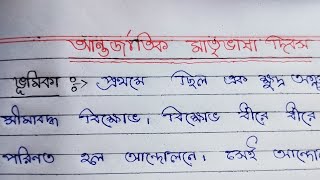 আন্তর্জাতিক মাতৃভাষা দিবস
ভূমিকা :-> প্রথমে ছিল এক ক্ষুদ্র
সীমাবদ্ধ বিক্ষোভ। বিক্ষোভ ধীরে ধীরে
পরিনত হল আন্দোলনে। সেই আন্দো